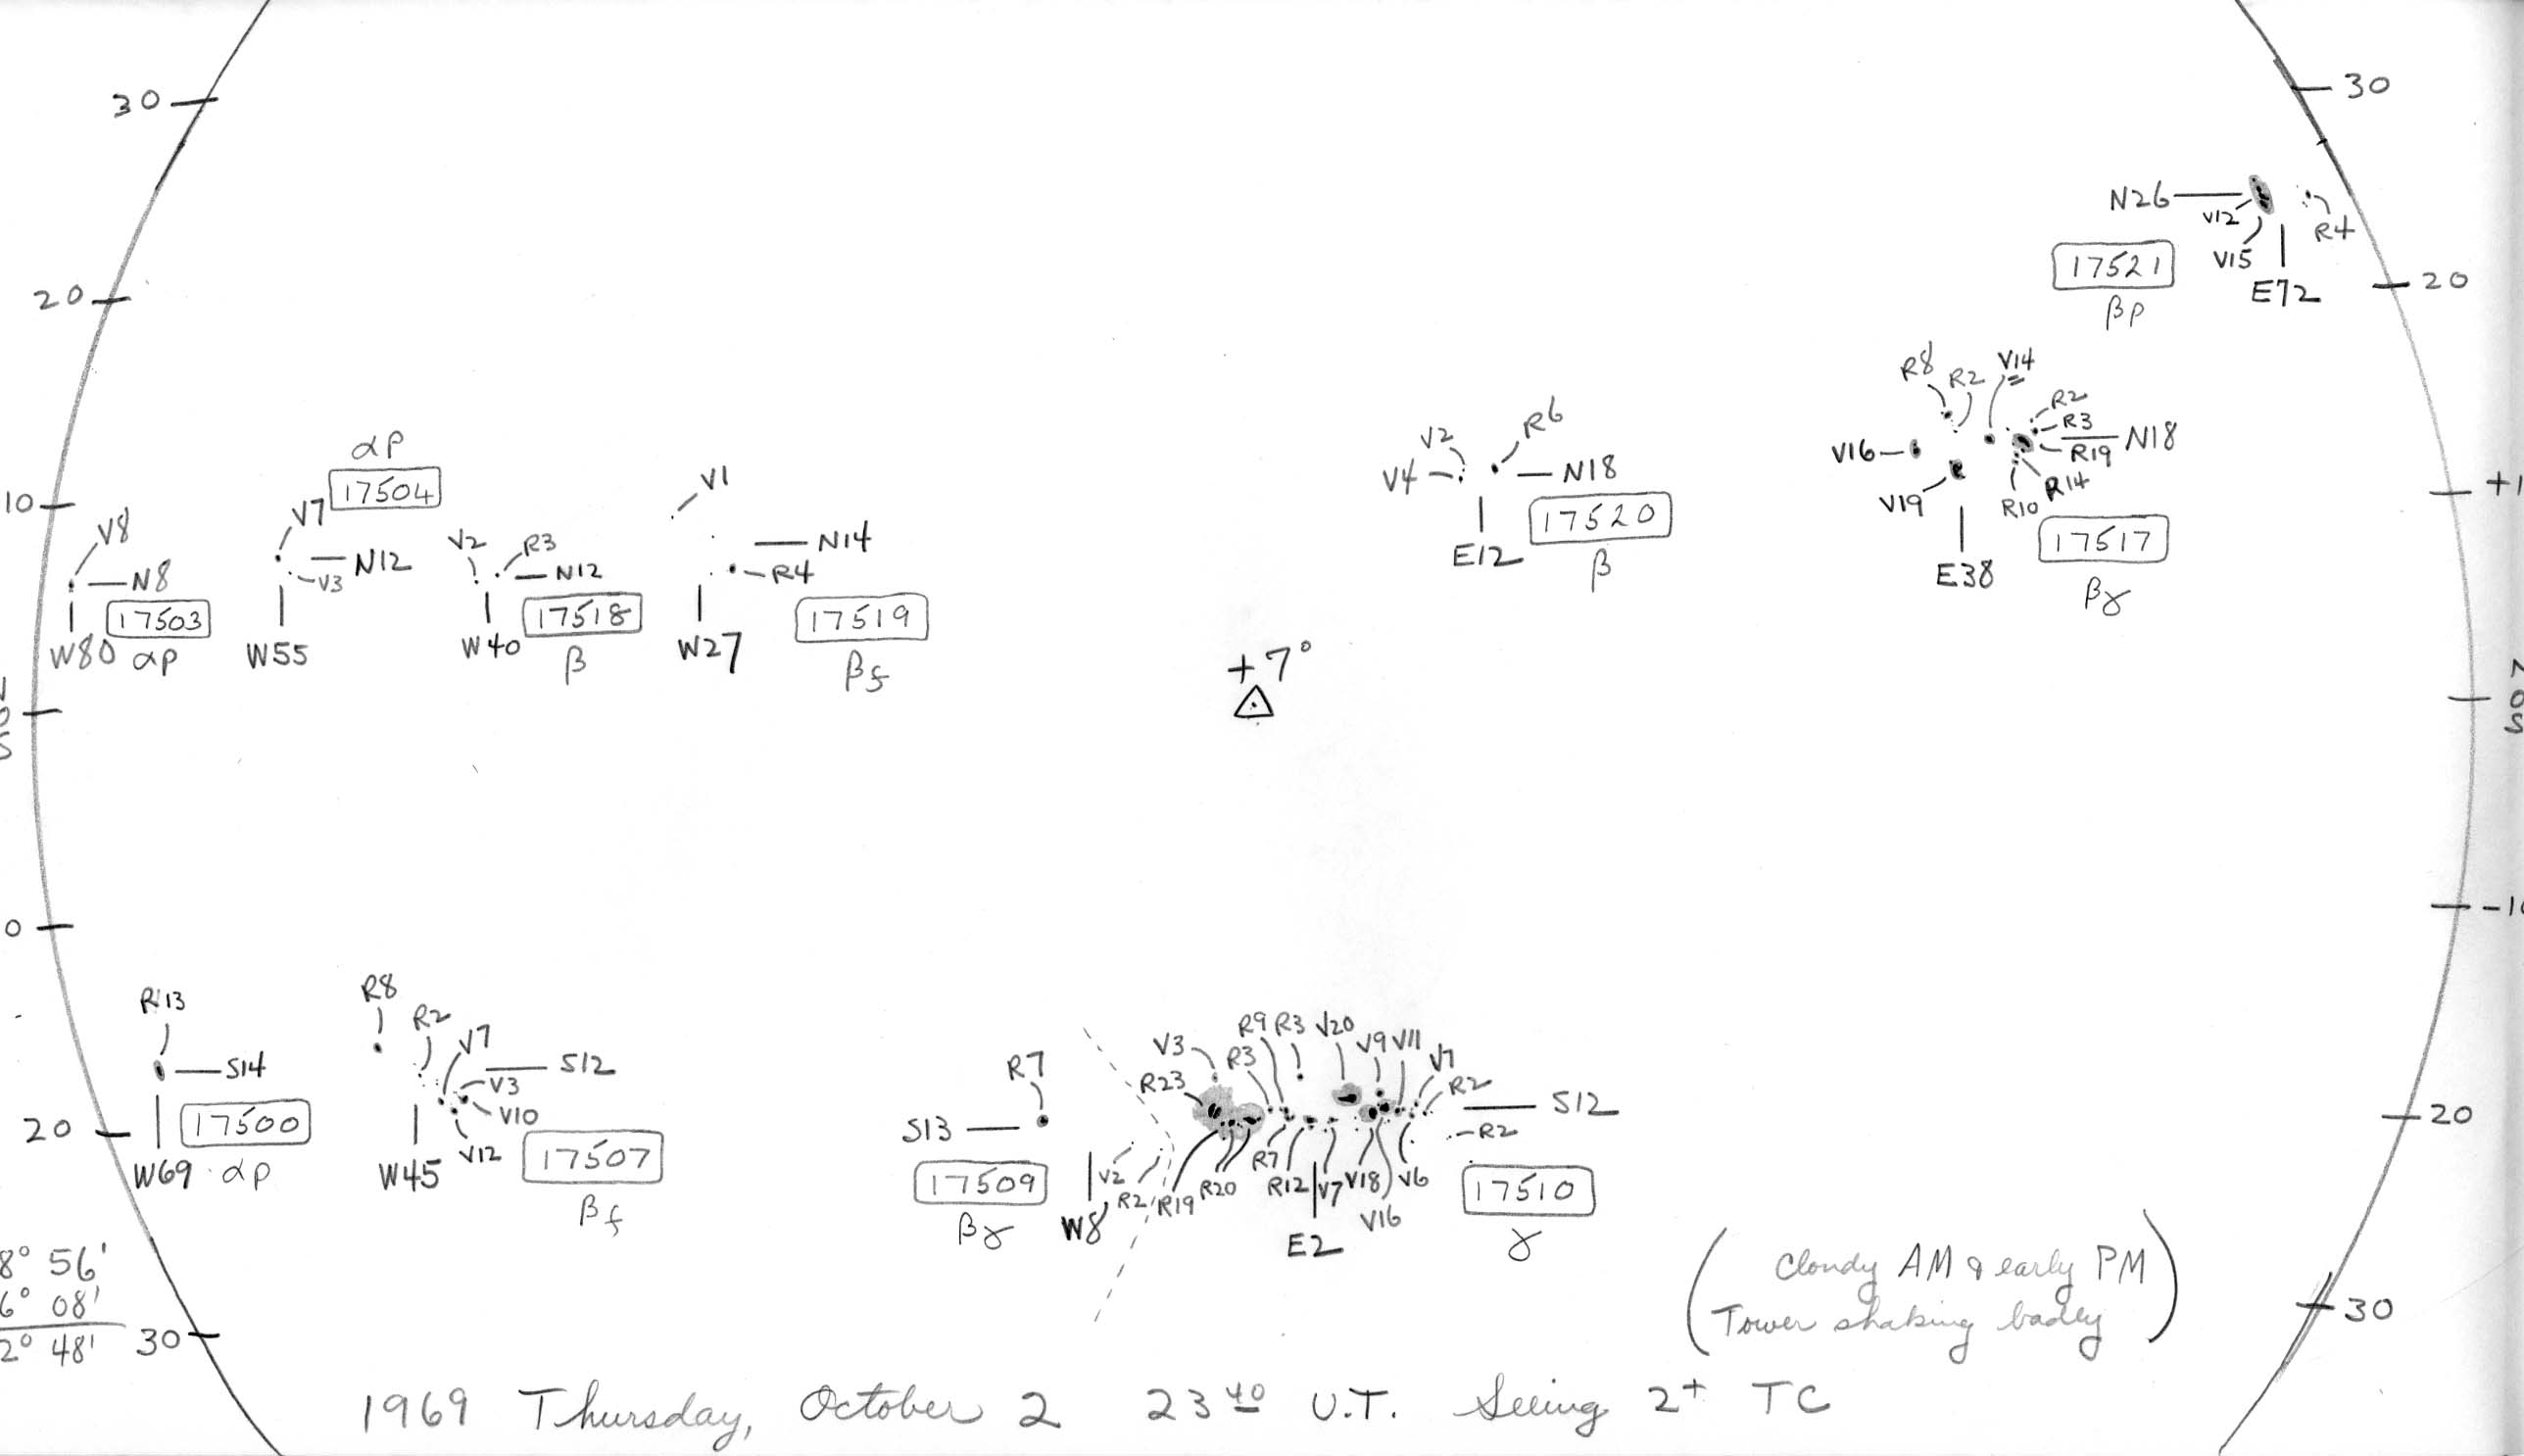 30
30
N26
V12
R4
V15
17521
E72
βp
20
20
R8
R2
V14
R2
R3
N18
R19
V16
R14
R10
V19
17517
E38
βγ
αp
17504
V7
N12
V3
W55
10
+1
V8
N8
17503
W80
αp
V2
R3
N12
17518
W40
β
V1
N14
R4
W27
17519
βf
V2
R6
V4
N18
17520
E12
β
+7°
N
0
S
0
-10
R13
S14
17500
W69
αp
R8
R2
V7
S12
V3
V10
V12
17507
W45
βf
R7
S13
17509
W8
βγ
V3
R9
R3
V20
V9
V11
V7
R2
R23
R3
S12
R2
V2
R2
R19
R20
R7
R12
V7
V18
V6
V16
17510
E2
γ
20
20
8° 56'
6° 08'
2° 48'
30
30
(Cloudy AM & early PM
Tower shaking badly)
1969 Thursday, October 2 23 40 U.T. Seeing 2+ TC